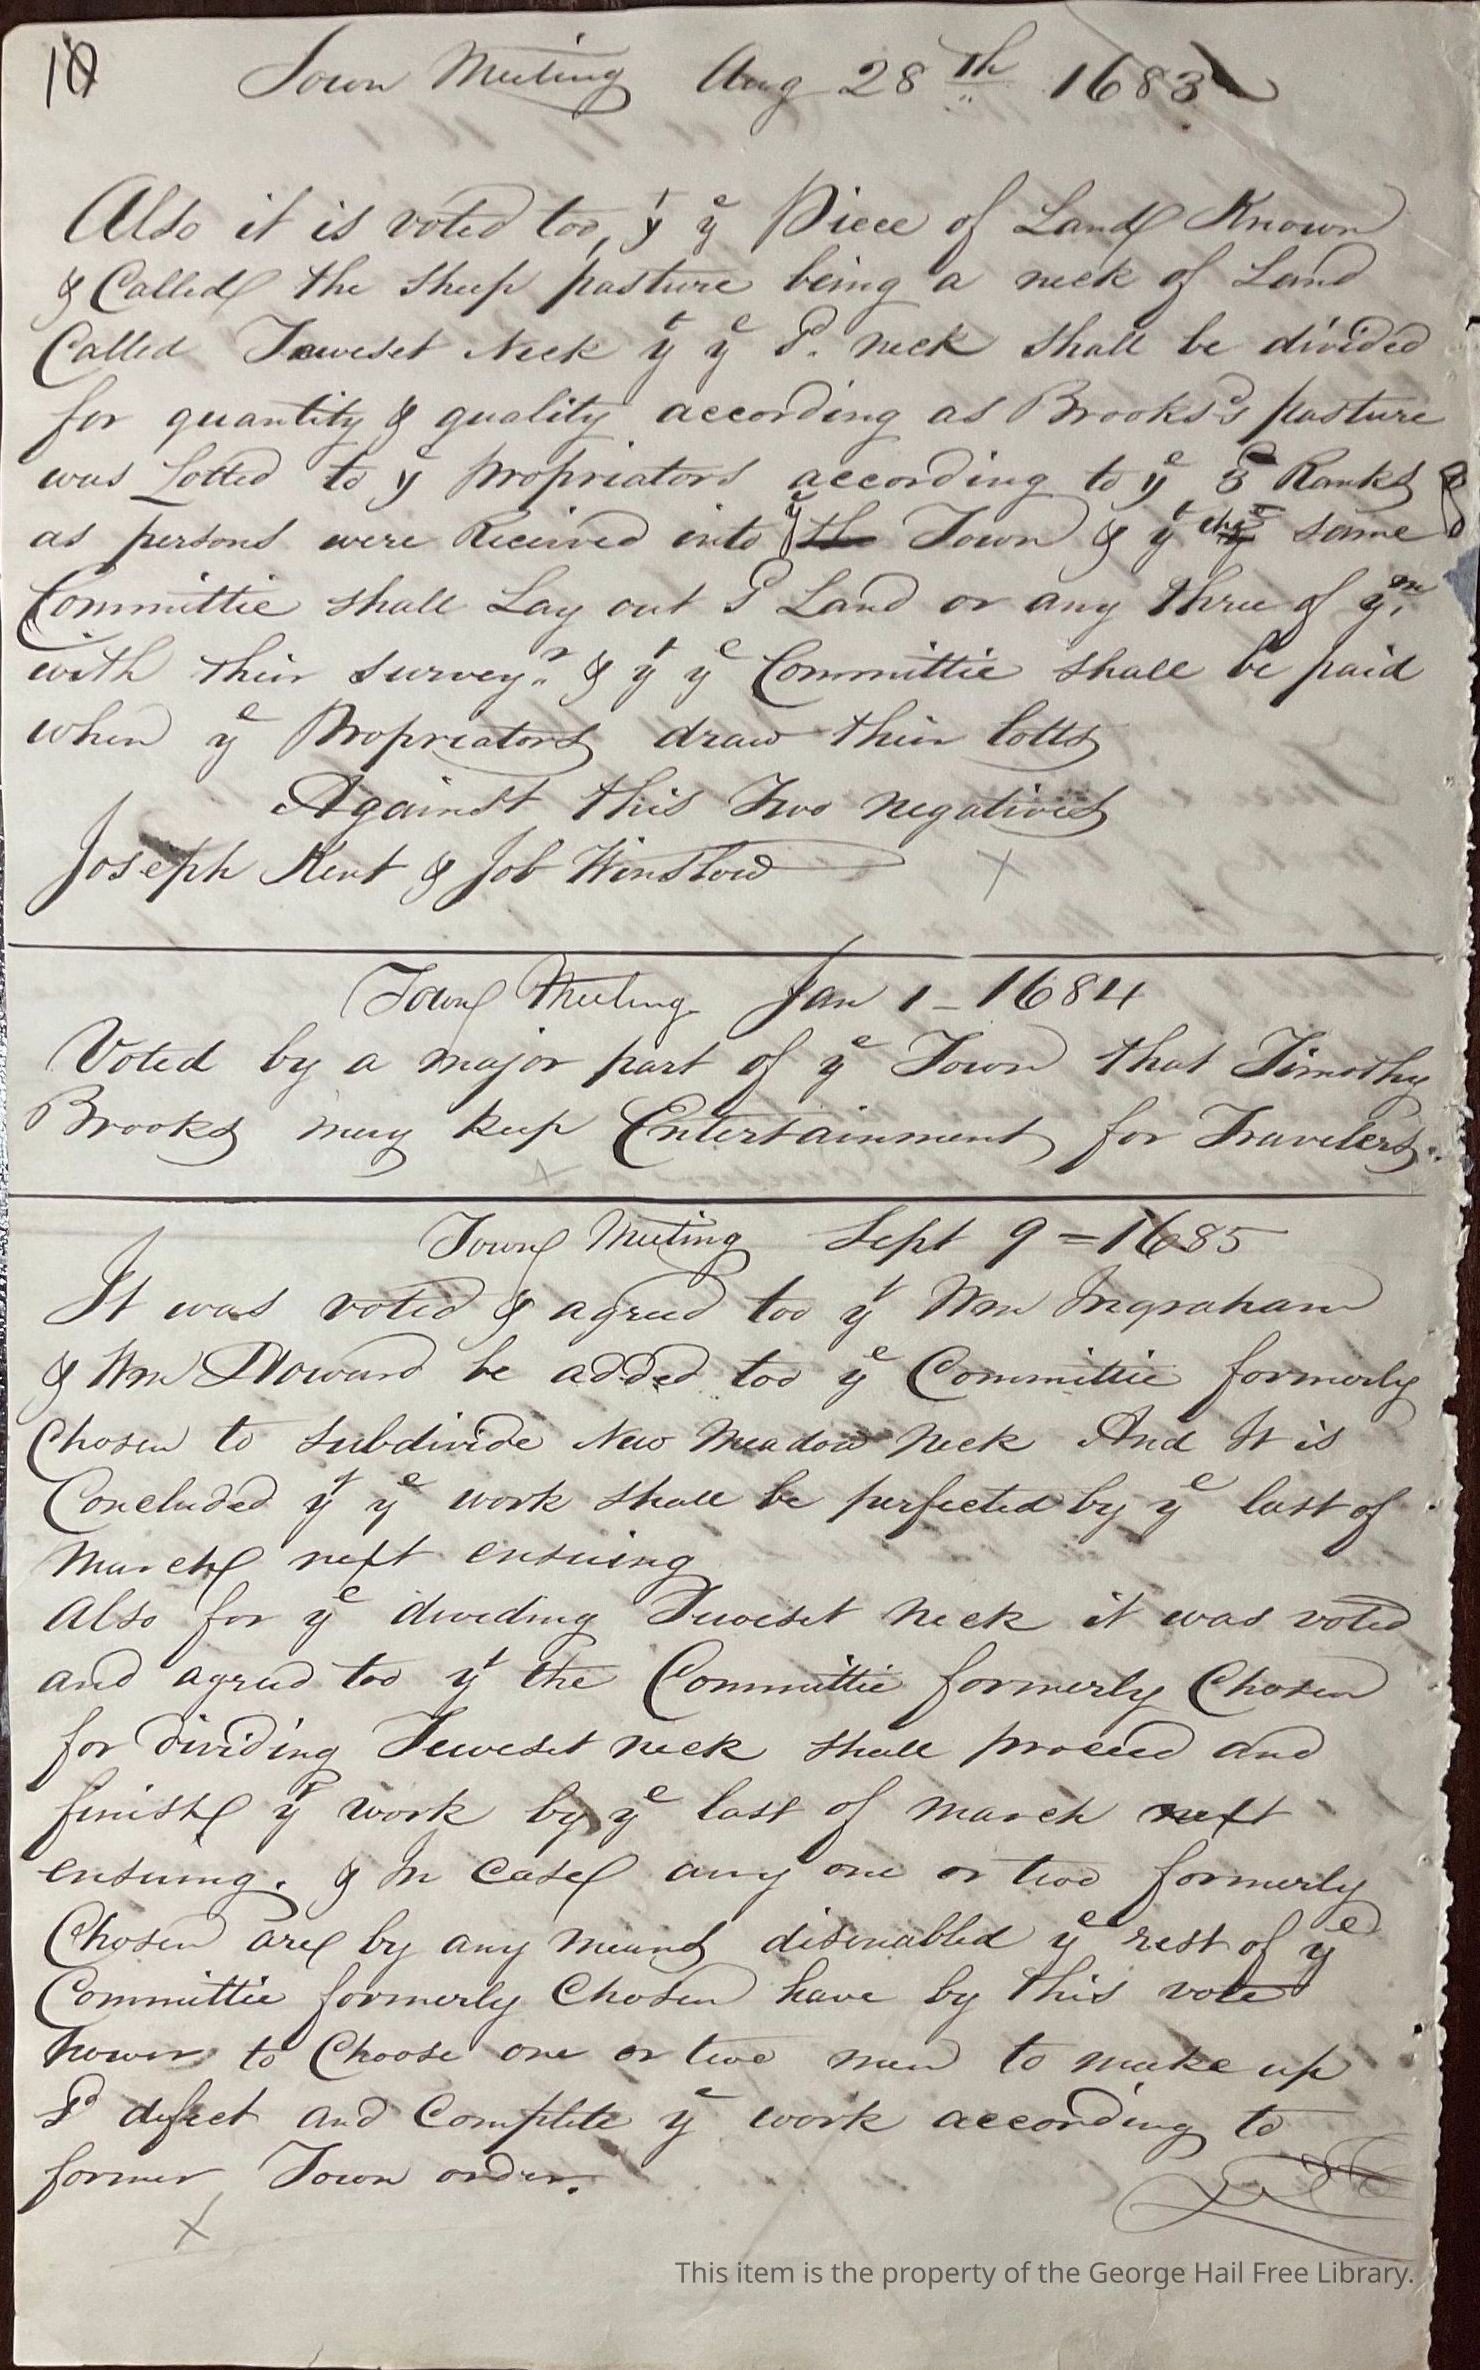 10 Town Meeting Aug 28th 1683
Also it is voted too, yt ye Piece of Land Known
& Called the Sheep pasture being a neck of Land
Called Toweset Neck yt ye Sd. neck shall be divided
for quantity & quality according as Brooks's pasture
was Lotted to ye propriators according to ye 3 Ranks &
as persons were Received into ye the Town & yt the same
Committie shall Lay out Sd Land or any three of ym.
with their survey.r & yt ye Committie shall be paid
when ye Propriators draw their lotts
Against this Two negatives
Joseph Kent & Job Winslow
Town Meeting Jan 1 - 1684
Voted by a major part of ye Town that Timothy
Brooks may keep Entertainment for Travelers.
Town Meeting Sept 9 = 1685
It was voted & agreed too yt Wm Ingraham
& Wm Howard be added too ye Committie formerly
Chosen to subdivide New Meadow Neck And It is
Concluded yt ye work shall be perfected by ye last of
March next ensuing
Also for ye dividing Toweset Neck it was voted
and agreed too yt the Committie formerly Chosen
for dividing Toweset neck shall proceed and
finish yt work by ye last of March next
ensuing. & In case any one or two formerly
Chosen are by any means disenabled ye rest of ye
Committie formerly Chosen have by this vote
power to Choose one or two men to make up
Sd defect and Complete ye work according to
former Town order.
This item is the property of the George Hail Free Library.